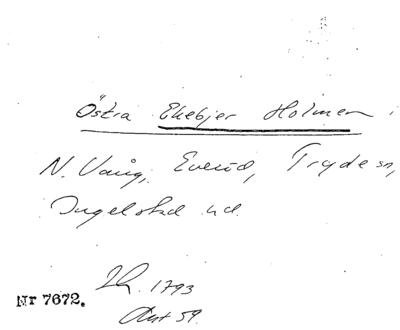 Östra Ekebjer Holmen i
N. Vång, Everöd, Tryde sn,
Ingelstad hd.
1793
Nr 7672.
Akt 59.